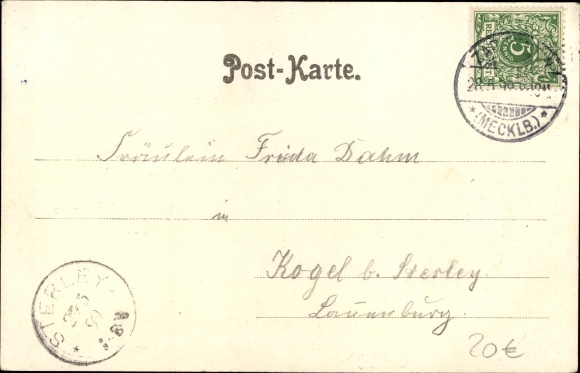 Post-Karte.
5
(MECKLB.)
Fräulein Frida Dahm
in
Kogel b. Sterley
Lauenburg
STERLEY
20€